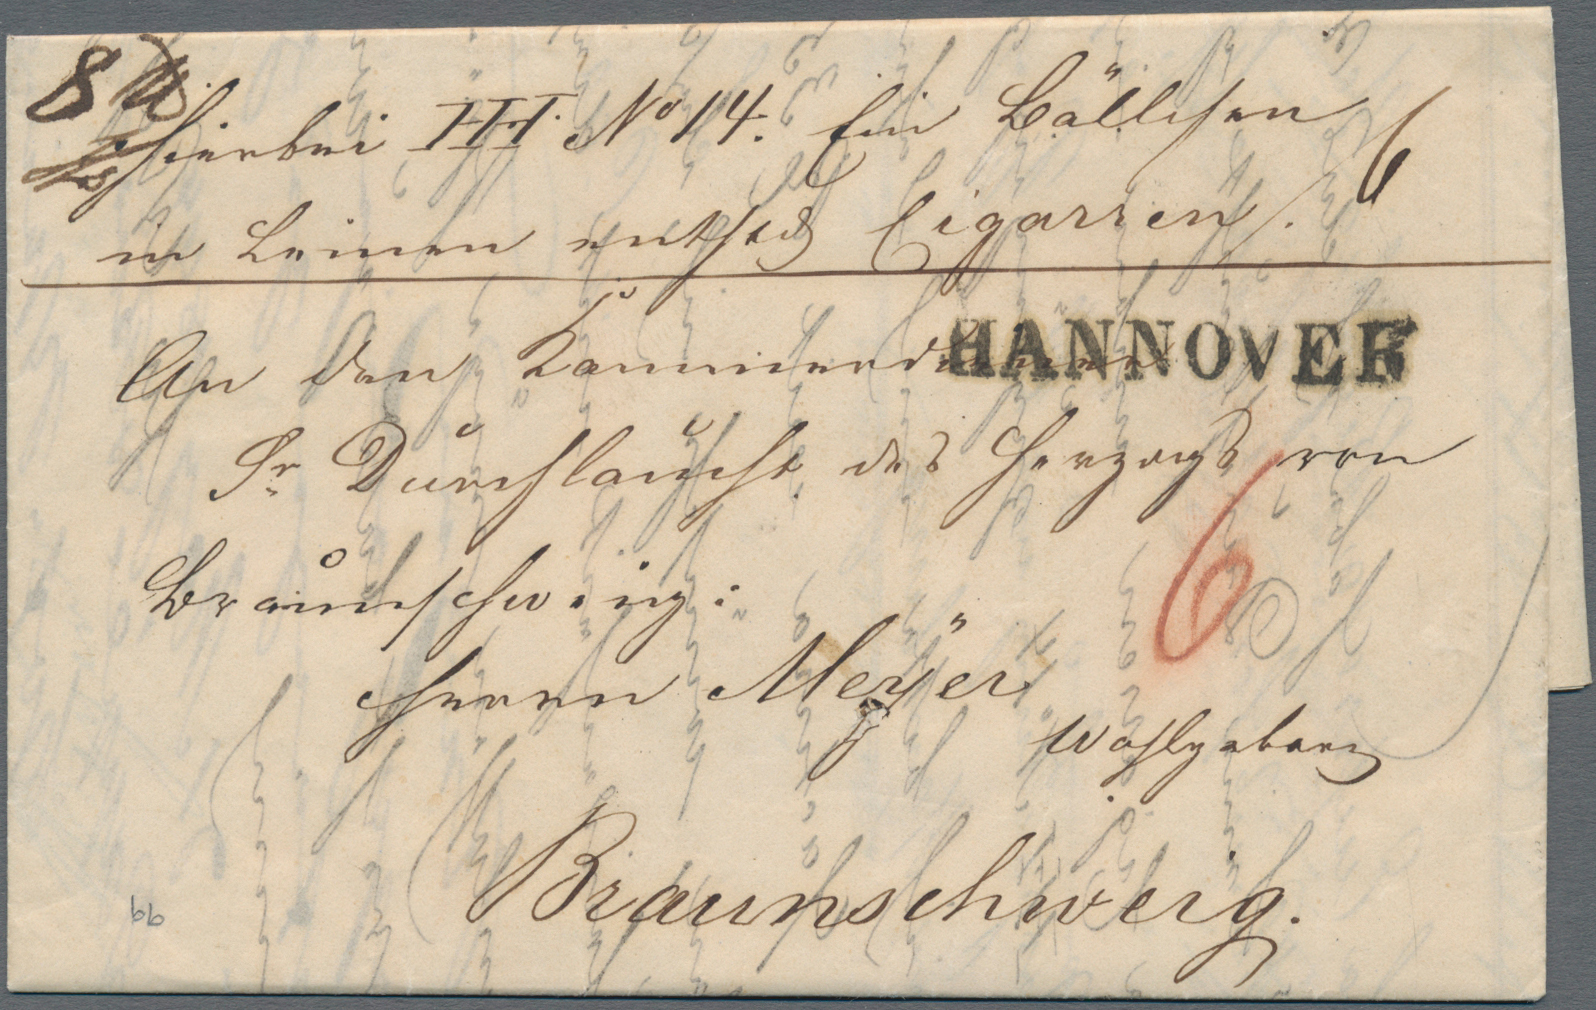 8
Hierbei HH. No 14. Ein Bällchen
in Leinen enthtd Cigarren.
An den Kammerdiener
HANNOVER
Sr Durchlaucht des Herzogs von
Braunschweig:
6
Herrn Meÿer
Wohlgeboren
Braunschweig.